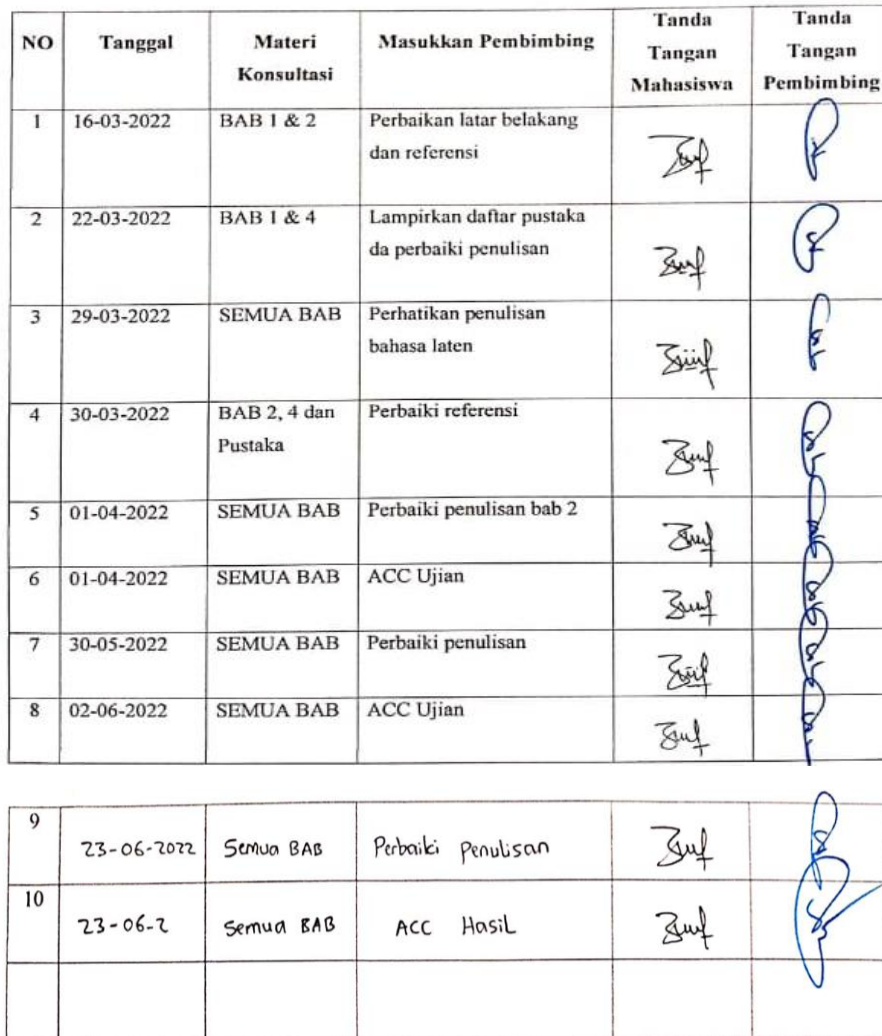 NO Tanggal Materi Konsultasi Masukkan Pembimbing Tanda Tangan Mahasiswa Tanda Tangan Pembimbing
1 16-03-2022 BAB 1 & 2 Perbaikan latar belakang
dan referensi
2 22-03-2022 BAB 1 & 4 Lampirkan daftar pustaka
da perbaiki penulisan
3 29-03-2022 SEMUA BAB Perhatikan penulisan
bahasa laten
4 30-03-2022 BAB 2, 4 dan Perbaiki referensi
Pustaka
5 01-04-2022 SEMUA BAB Perbaiki penulisan bab 2
6 01-04-2022 SEMUA BAB ACC Ujian
7 30-05-2022 SEMUA BAB Perbaiki penulisan
8 02-06-2022 SEMUA BAB ACC Ujian
9 23-06-2022 Semua BAB Perbaiki Penulisan
10 23-06-2 Semua BAB ACC Hasil